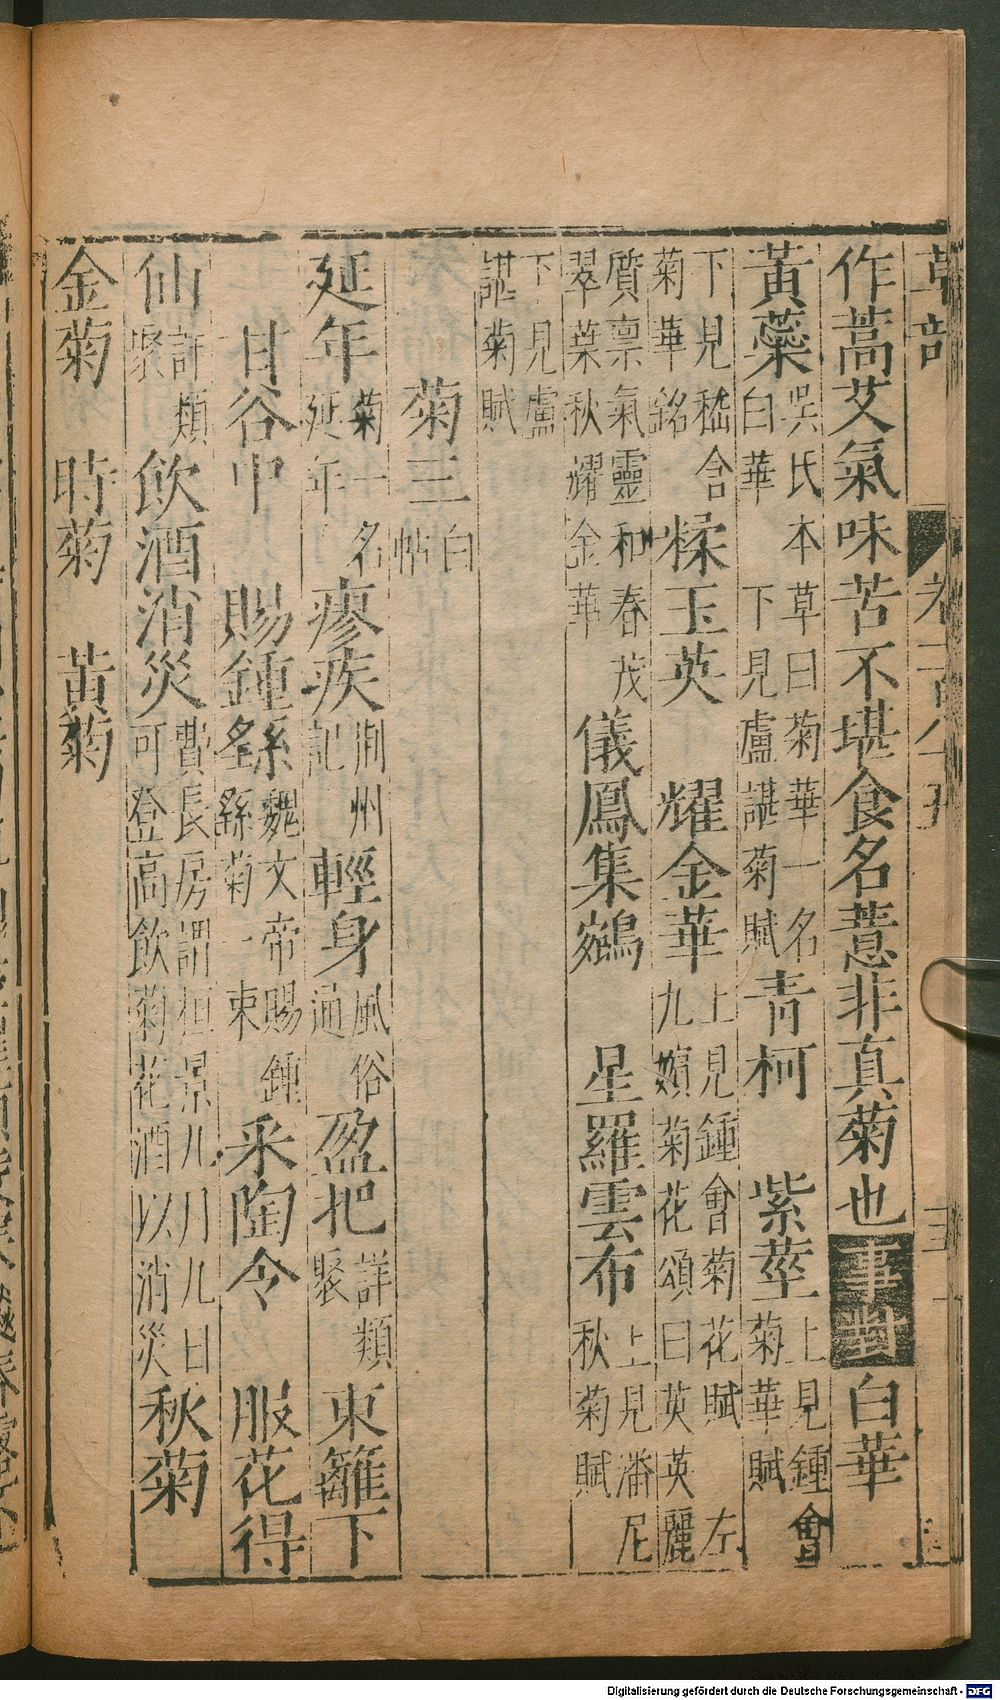 草部
作蒿艾氣味苦不堪食名薏非真菊也事對白華
黃蘂吳氏本草曰菊華一名白華下見盧諶菊賦青柯紫莖上見鍾會菊華賦
下見嵇含菊華銘糅玉英耀金華上見鍾會菊花賦左九嬪菊花頌曰英英麗
質禀氣靈和春茂翠葉秋耀金華儀鳳集鵷星羅雲布上見潘尼秋菊賦
下見盧諶菊賦
菊三白帖
延年菊一名延年瘳疾荆州記輕身風俗通盈把詳類聚東籬下
甘谷中賜鍾繇魏文帝賜鍾繇菊一束采陶令服花得
仙詳類聚飲酒消災費長房謂桓景九月九日可登高飲菊花酒以消災秋菊
金菊時菊黃菊
Digitalisierung gefördert durch die Deutsche Forschungsgemeinschaft - DFG